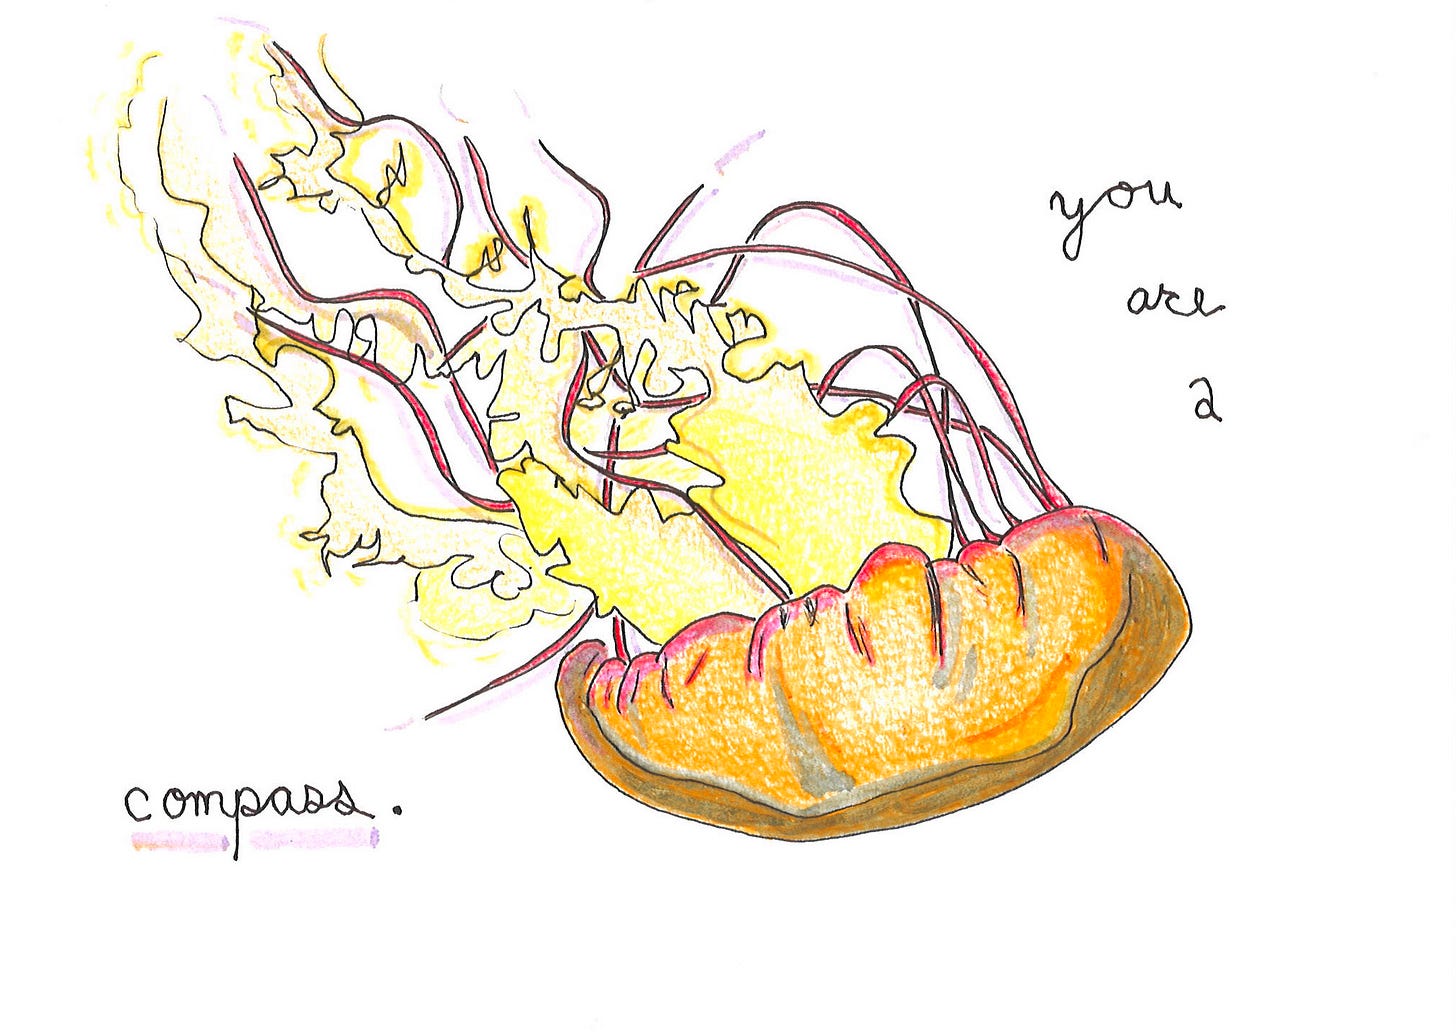 you
are
a
compass.